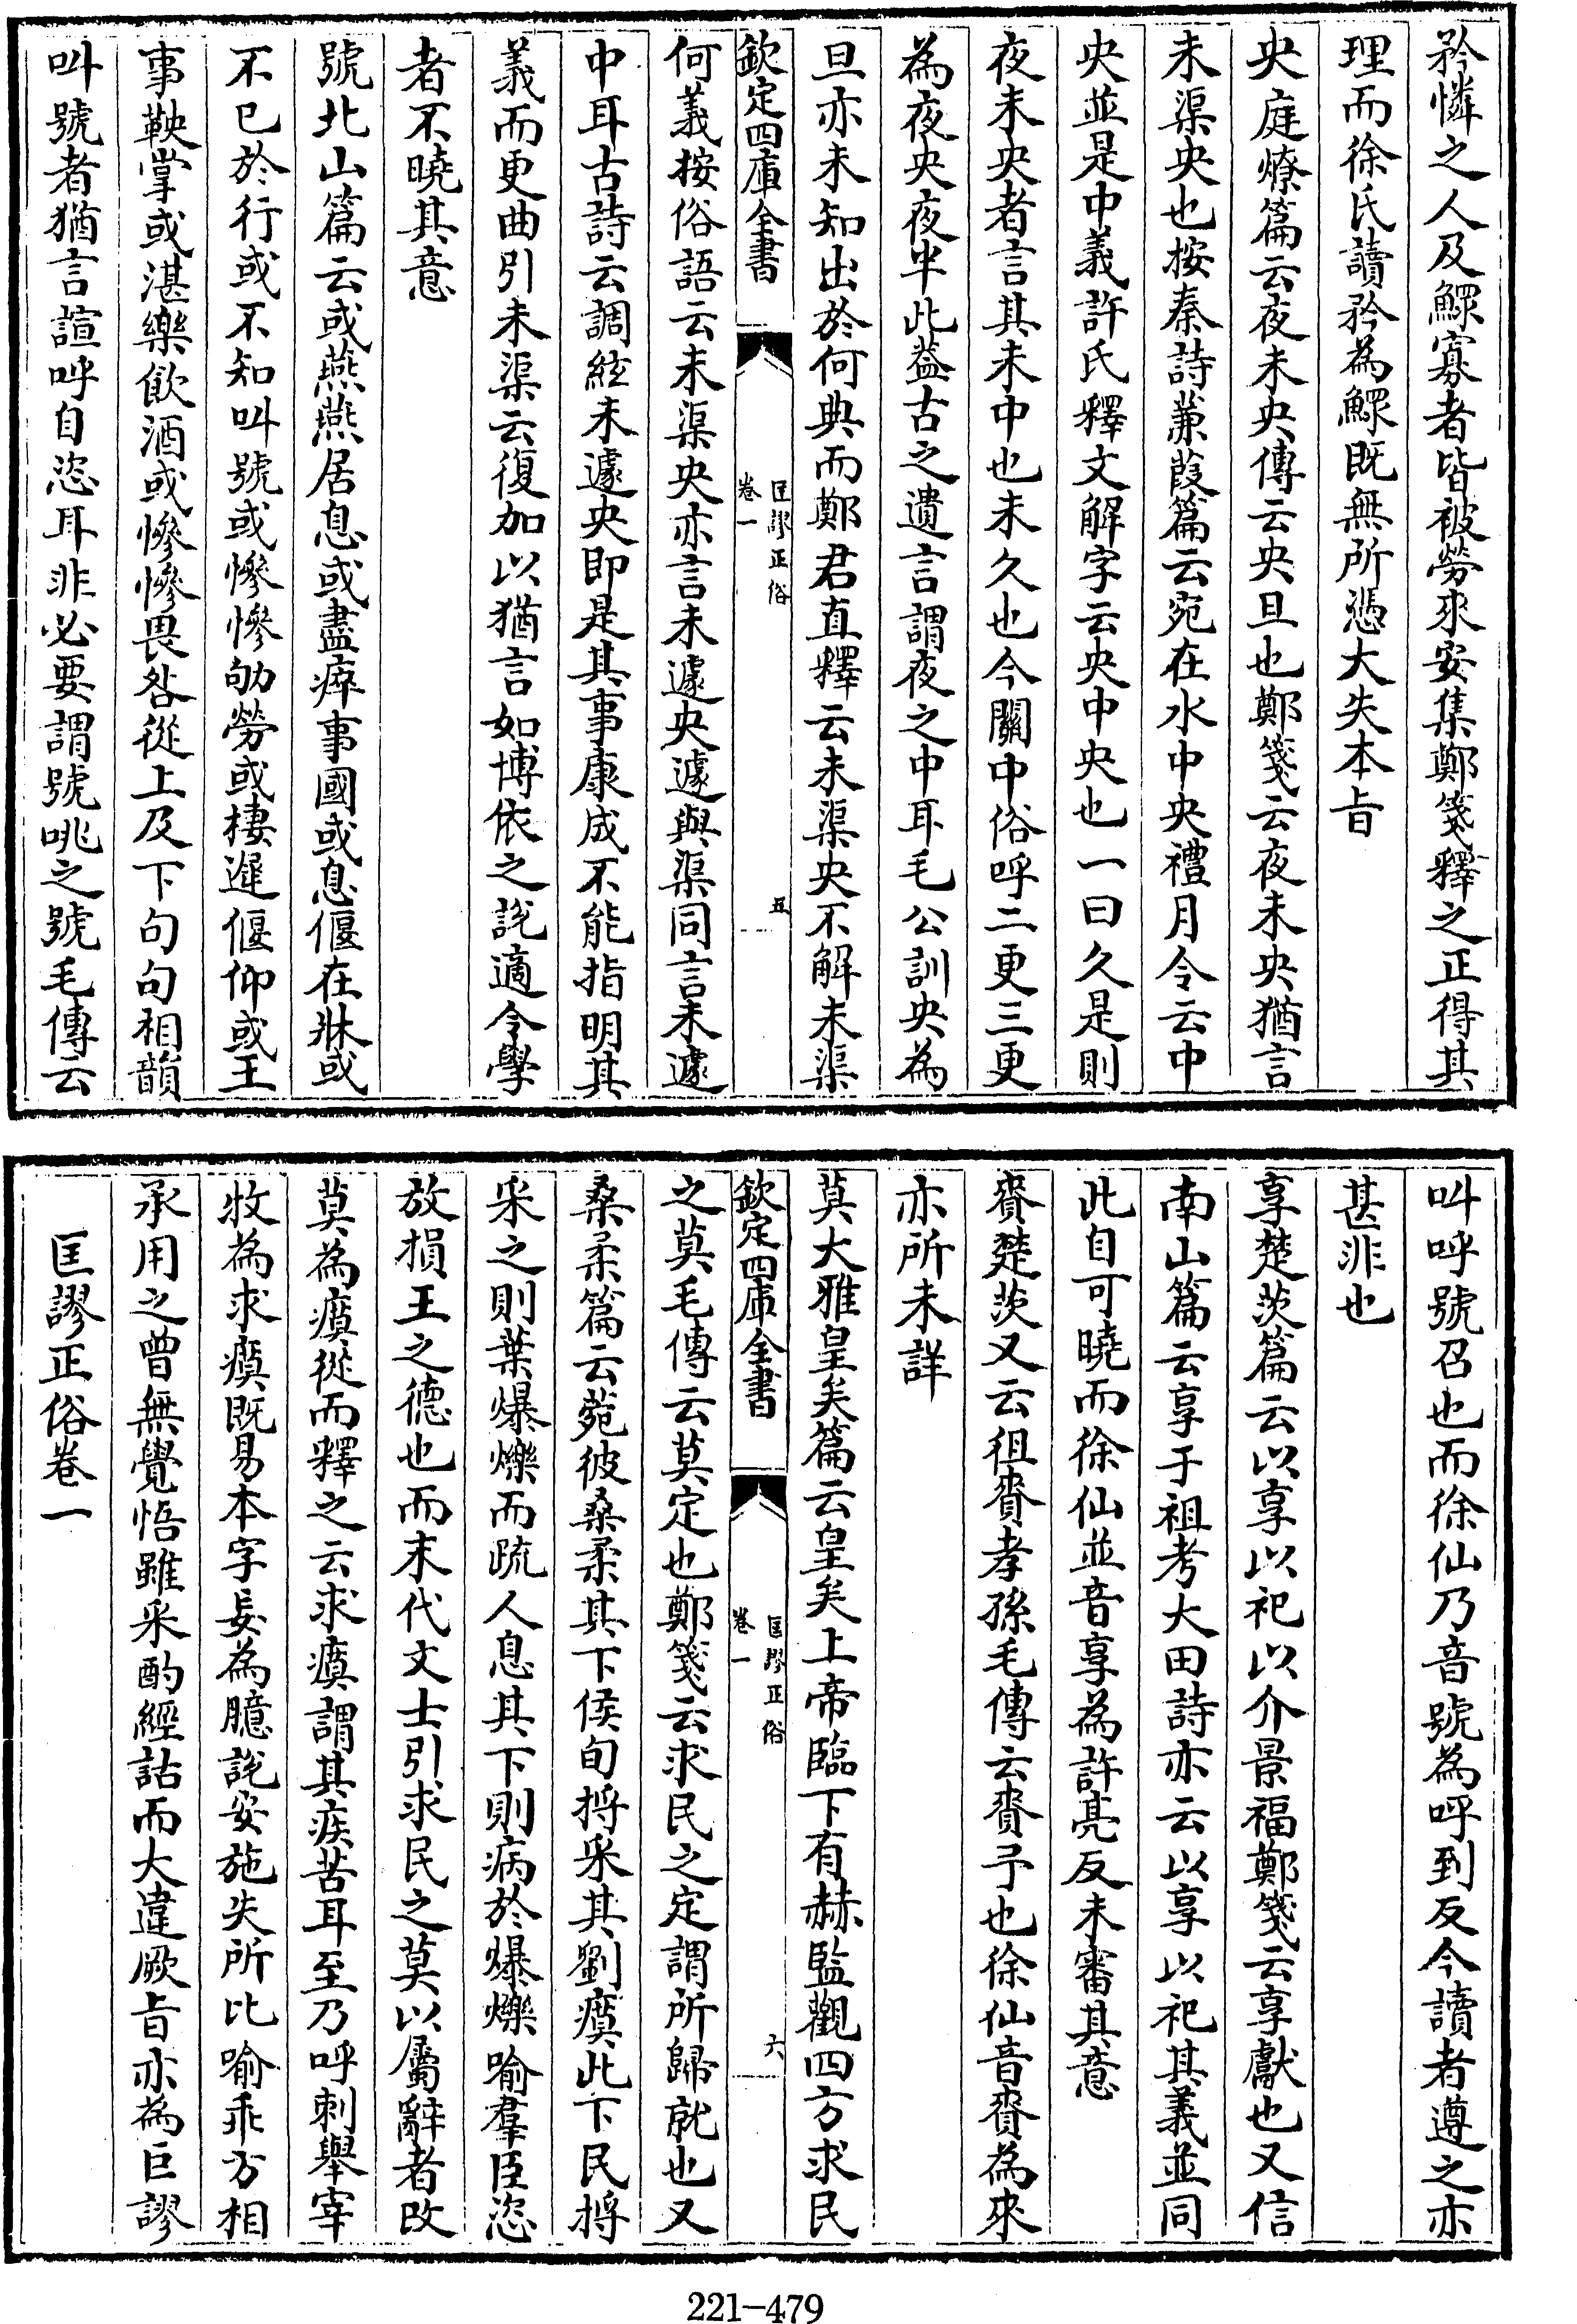 矜憐之人及鰥寡者皆被勞來安集鄭箋釋之正得其
理而徐氏讀矜為鰥既無所憑大失本旨
央庭燎篇云夜未央傳云央旦也鄭箋云夜未央猶言
未渠央也按秦詩蒹葭篇云宛在水中央禮月令云中
央並是中義許氏釋文解字云央中央也一曰久是則
夜未央者言其未中也未久也今關中俗呼二更三更
為夜央夜半此葢古之遺言謂夜之中耳毛公訓央為
旦亦未知出於何典而鄭君直釋云未渠央不解未渠
欽定四庫全書
匡謬正俗
卷一
五
何義按俗語云未渠央亦言未遽央遽與渠同言未遽
中耳古詩云調絃未遽央即是其事康成不能指明其
義而更曲引未渠云復加以猶言如博依之説適令學
者不曉其意
號北山篇云或燕燕居息或盡瘁事國或息偃在牀或
不已於行或不知叫號或慘慘劬勞或棲遲偃仰或王
事鞅掌或湛樂飲酒或慘慘畏咎從上及下句句相韻
叫號者猶言諠呼自恣耳非必要謂號咷之號毛傳云
叫呼號召也而徐仙乃音號為呼到反今讀者遵之亦
甚非也
享楚茨篇云以享以祀以介景福鄭箋云享獻也又信
南山篇云享于祖考大田詩亦云以享以祀其義並同
此自可曉而徐仙並音享為許亮反未審其意
賚楚茨又云徂賚孝孫毛傳云賚予也徐仙音賚為來
亦所未詳
莫大雅皇矣篇云皇矣上帝臨下有赫監觀四方求民
欽定四庫全書
匡謬正俗
卷一
六
之莫毛傳云莫定也鄭箋云求民之定謂所歸就也又
桑柔篇云菀彼桑柔其下侯旬捋采其劉瘼此下民捋
采之則葉爆爍而疏人息其下則病於爆爍喻羣臣恣
放損王之德也而末代文士引求民之莫以屬辭者改
莫為瘼從而釋之云求瘼謂其疾苦耳至乃呼刺舉宰
牧為求瘼既易本字妄為臆説安施失所比喻乖方相
承用之曾無覺悟雖采酌經詁而大違厥旨亦為巨謬
匡謬正俗卷一
221-479